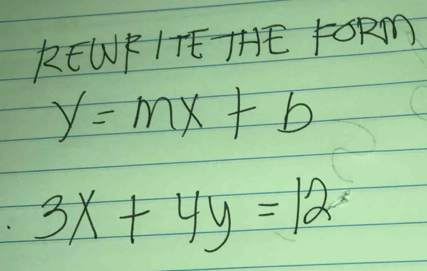 REWRITE THE FORM
y = mx + b
3x + 4y = 12